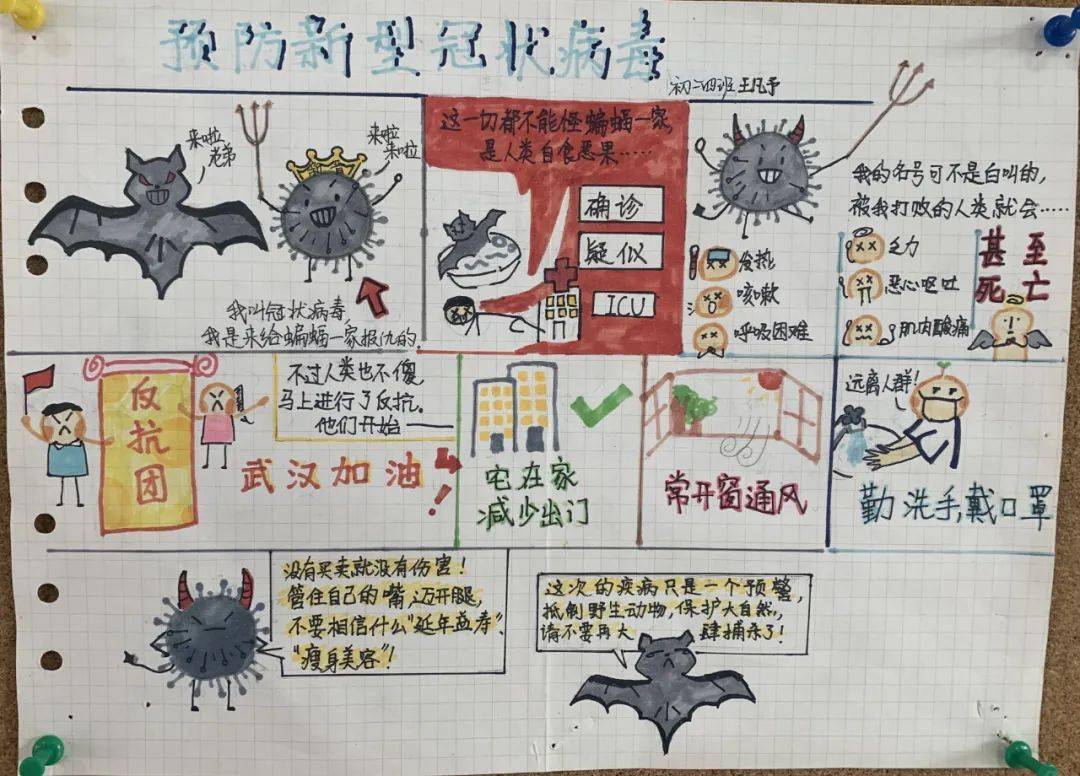 预防新型冠状病毒
初一四班 王凡予
来啦
老弟
来啦
来啦
我叫冠状病毒
我是来给蝙蝠一家报仇的.
这一切都不能怪蝙蝠一家,
是人类自食恶果……
确诊
疑似
ICU
我的名号可不是白叫的,
被我打败的人类就会……
发热
咳嗽
呼吸困难
乏力
恶心呕吐
肌肉酸痛
甚至
死亡
反抗团
不过人类也不傻,
马上进行了反抗.
他们开始——
武汉加油!
宅在家
减少出门
常开窗通风
远离人群!
勤洗手,戴口罩
没有买卖就没有伤害!
管住自己的嘴,迈开腿,
不要相信什么“延年益寿”、
“瘦身美容”!
这次的疾病只是一个预警,
抵制野生动物,保护大自然,
请不要再大肆捕杀了!